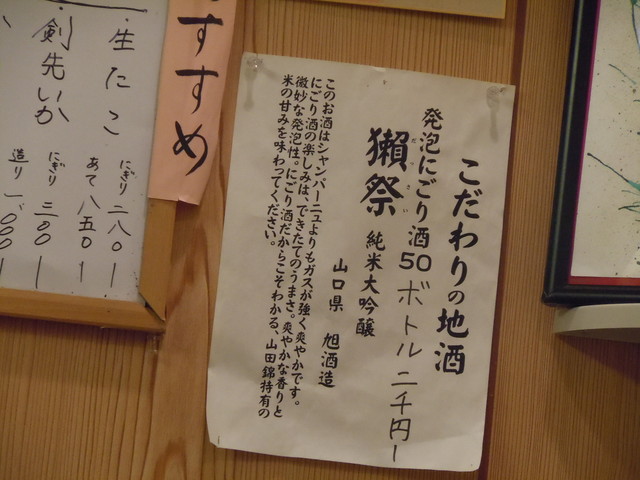 こだわりの地酒
発泡にごり酒50ボトル 二千円ー
だっさい
獺祭 純米大吟醸
山口県 旭酒造
このお酒はシャンパーニュよりもガスが強く爽やかです。
にごり酒の楽しみは、できたてのうまさ。爽やかな香りと
微妙な発泡性。にごり酒だからこそわかる、山田錦特有の
米の甘みを味わってください。
すすめ
・生たこ
にぎり 二八〇ー
あて 八五〇ー
・剣先いか
にぎり 三〇〇ー
造り 一、〇〇〇ー